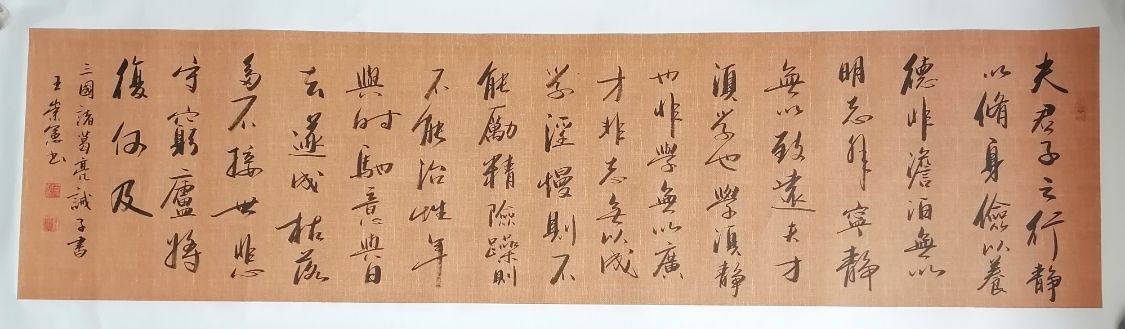 夫君子之行静
以脩身儉以養
德非澹泊無以
明志非寧静
無以致遠夫才
須学也學須静
也非學無以廣
才非志無以成
学淫慢則不
能勵精險躁則
不能治性年
與时馳意與日
去遂成枯落
多不接世悲
守窮廬將
復何及
三國諸葛亮誡子書
王崇憲书